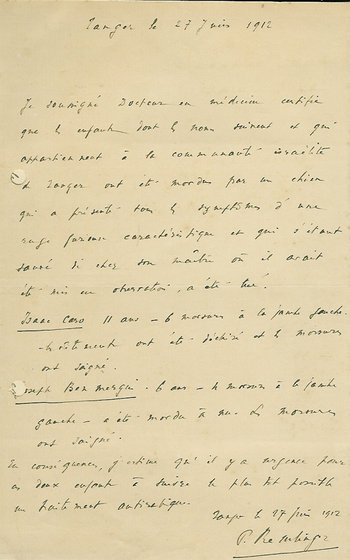 Tanger le 27 Juin 1912
Je soussigné Docteur en médecine certifie
que les enfants dont les noms suivent et qui
appartiennent à la communauté israélite
de Tanger ont été mordus par un chien
qui a présenté tous les symptômes d'une
rage furieuse caractéristique et qui s'étant
sauvé de chez son maître où il avait
été mis en observation, a été tué.
Isaac Caro 11 ans - 6 morsures à la jambe gauche.
- les vêtements ont été déchirés et les morsures
ont saigné.
Joseph Benmergui - 6 ans - 4 morsures à la jambe
gauche - a été mordu à nu. Les morsures
ont saigné.
En conséquence, j'estime qu'il y a urgence pour
ces deux enfants à suivre le plus tôt possible
un traitement antirabique.
Tanger le 27 Juin 1912
P. Remlinger